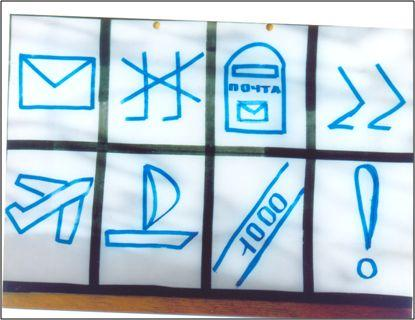 ПОЧТА
1000
!